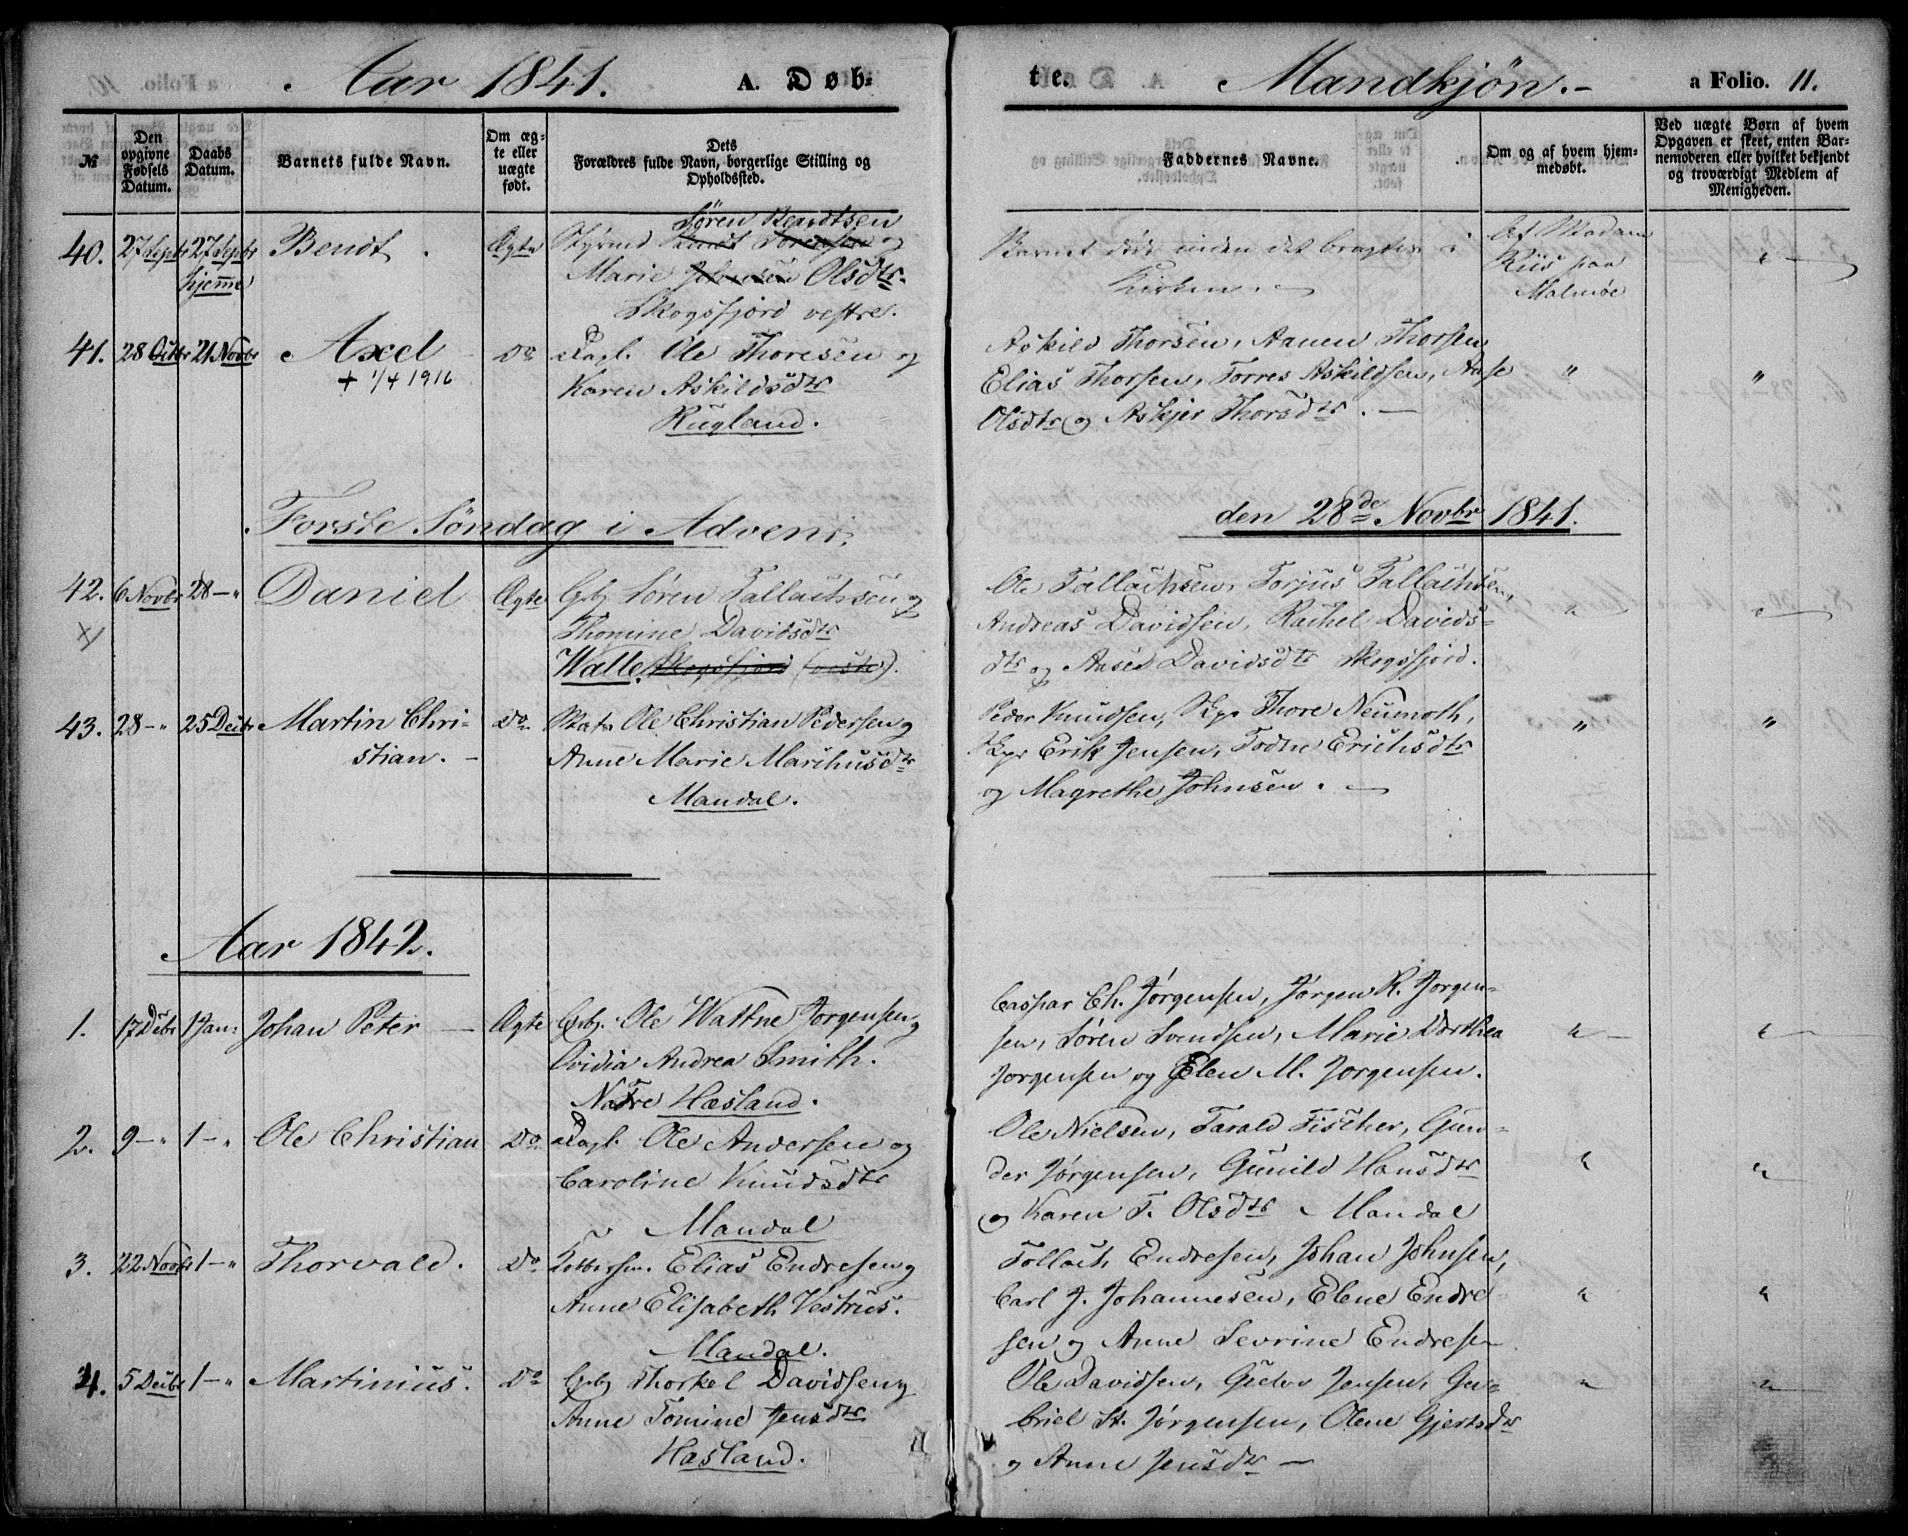 Aar 1841. A. Døb-
te. Mandkjøn. a Folio. 11.
№
Den opgivne Fødsels Datum.
Daabs Datum.
Barnets fulde Navn.
Om æg-
te eller
uægte
født.
Dets
Forældres fulde Navn, borgerlige Stilling og
Opholdssted.
Faddernes Navne.
Om og af hvem hjem-
medøbt.
Ved uægte Børn af hvem
Opgaven er skeet, enten Bar-
nemoderen eller hvilket bekjendt
og troværdigt Medlem af
Menigheden.
Søren Bendtsen
40. 27 Septr 27 Septbr Bendt Ægte Styrmd Bendt Sørensen og
hjemme Marie Johnsen Olsdtr.
Skogsfjord vestre.
Barnet døde inden det bragtes i
Kirken.
Af Madam
Riis paa
Malmøe
"
41. 28 Octbr 21 Novbr Axel Do Dagl. Ole Thoresen og
+ 1/4 1916 Karen Askildsdtr
Rugland.
Askild Thorsen, Aanen Thorsen
Elias Thorsen, Torres Askildsen, Aase " "
Olsdtr og Askjer Thorsdtr.
Første Søndag i Advent, den 28de Novbr 1841.
42. 6 Novbr 28 – " Daniel Ægte Gbr Søren Tallachsen og
Thomine Davidsdtr
Walle. Skogsfjord (vestre).
Ole Tallachsen, Torjus Tallachsen,
Andreas Davidsen, Rachel Davids- " "
dtr og Aase Davidsdtr Skogsfjord.
43. 28 – " 25 Decbr Martin Chri- Do Ole Christian Pedersen og
stian. Anne Marie Marthusdtr
Mandal.
Peder Knudsen, Skpr Thore Neumoth, " "
Skpr Erik Jensen, Todne Erichsdtr
og Magrethe Johnsen.
Aar 1842.
1. 17 Debr 1 Jan: Johan Peter Ægte Gbr. Ole Wattne Jørgensen og
Ovidia Andrea Smith.
Nedre Hæsland.
Caspar Ch. Jørgensen, Jørgen R. Jørgen-
sen, Søren Svendsen, Marie Dorthea " "
Jørgensen og Elen M. Jørgensen.
2. 9 – " 1 – " Ole Christian Do Dagl. Ole Andersen og
Caroline Knudsdtr
Mandal
Ole Nielsen, Tarald Fischer, Gun-
der Jørgensen, Gunild Hansdtr " "
og Karen T. Olsdtr Mandal
3. 22 Novbr 1 – " Thorvald. Do Elias Endresen og
Anne Elisabeth Vestrus.
Mandal.
Tollach Endresen, Johan Johnsen,
Carl J. Johannesen, Elene Endre- " "
sen og Anne Sevrine Endresen
4. 5 Decbr 1 – " Martinius. Do Gbr Thorkel Davidsen og
Anne Tomine Jensdtr
Hæsland.
Ole Davidsen, Gustav Jensen, Ga- " "
briel St. Jørgensen, Olene Gjertsdtr
og Anne Jensdtr